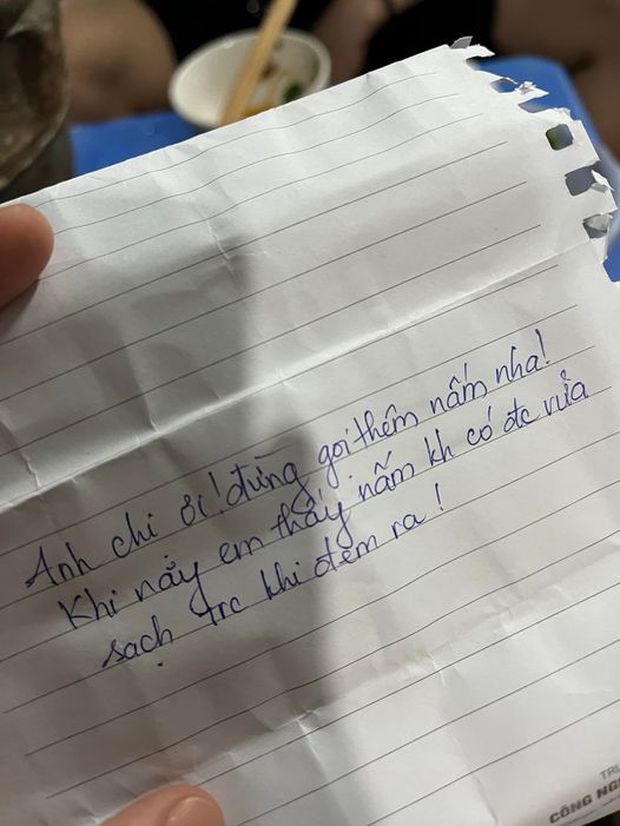 Anh chị ơi! đừng gọi thêm nấm nha!
Khi nảy em thấy nấm kh có đc rửa
sạch trc khi đem ra!
TRƯ
CÔNG NGH